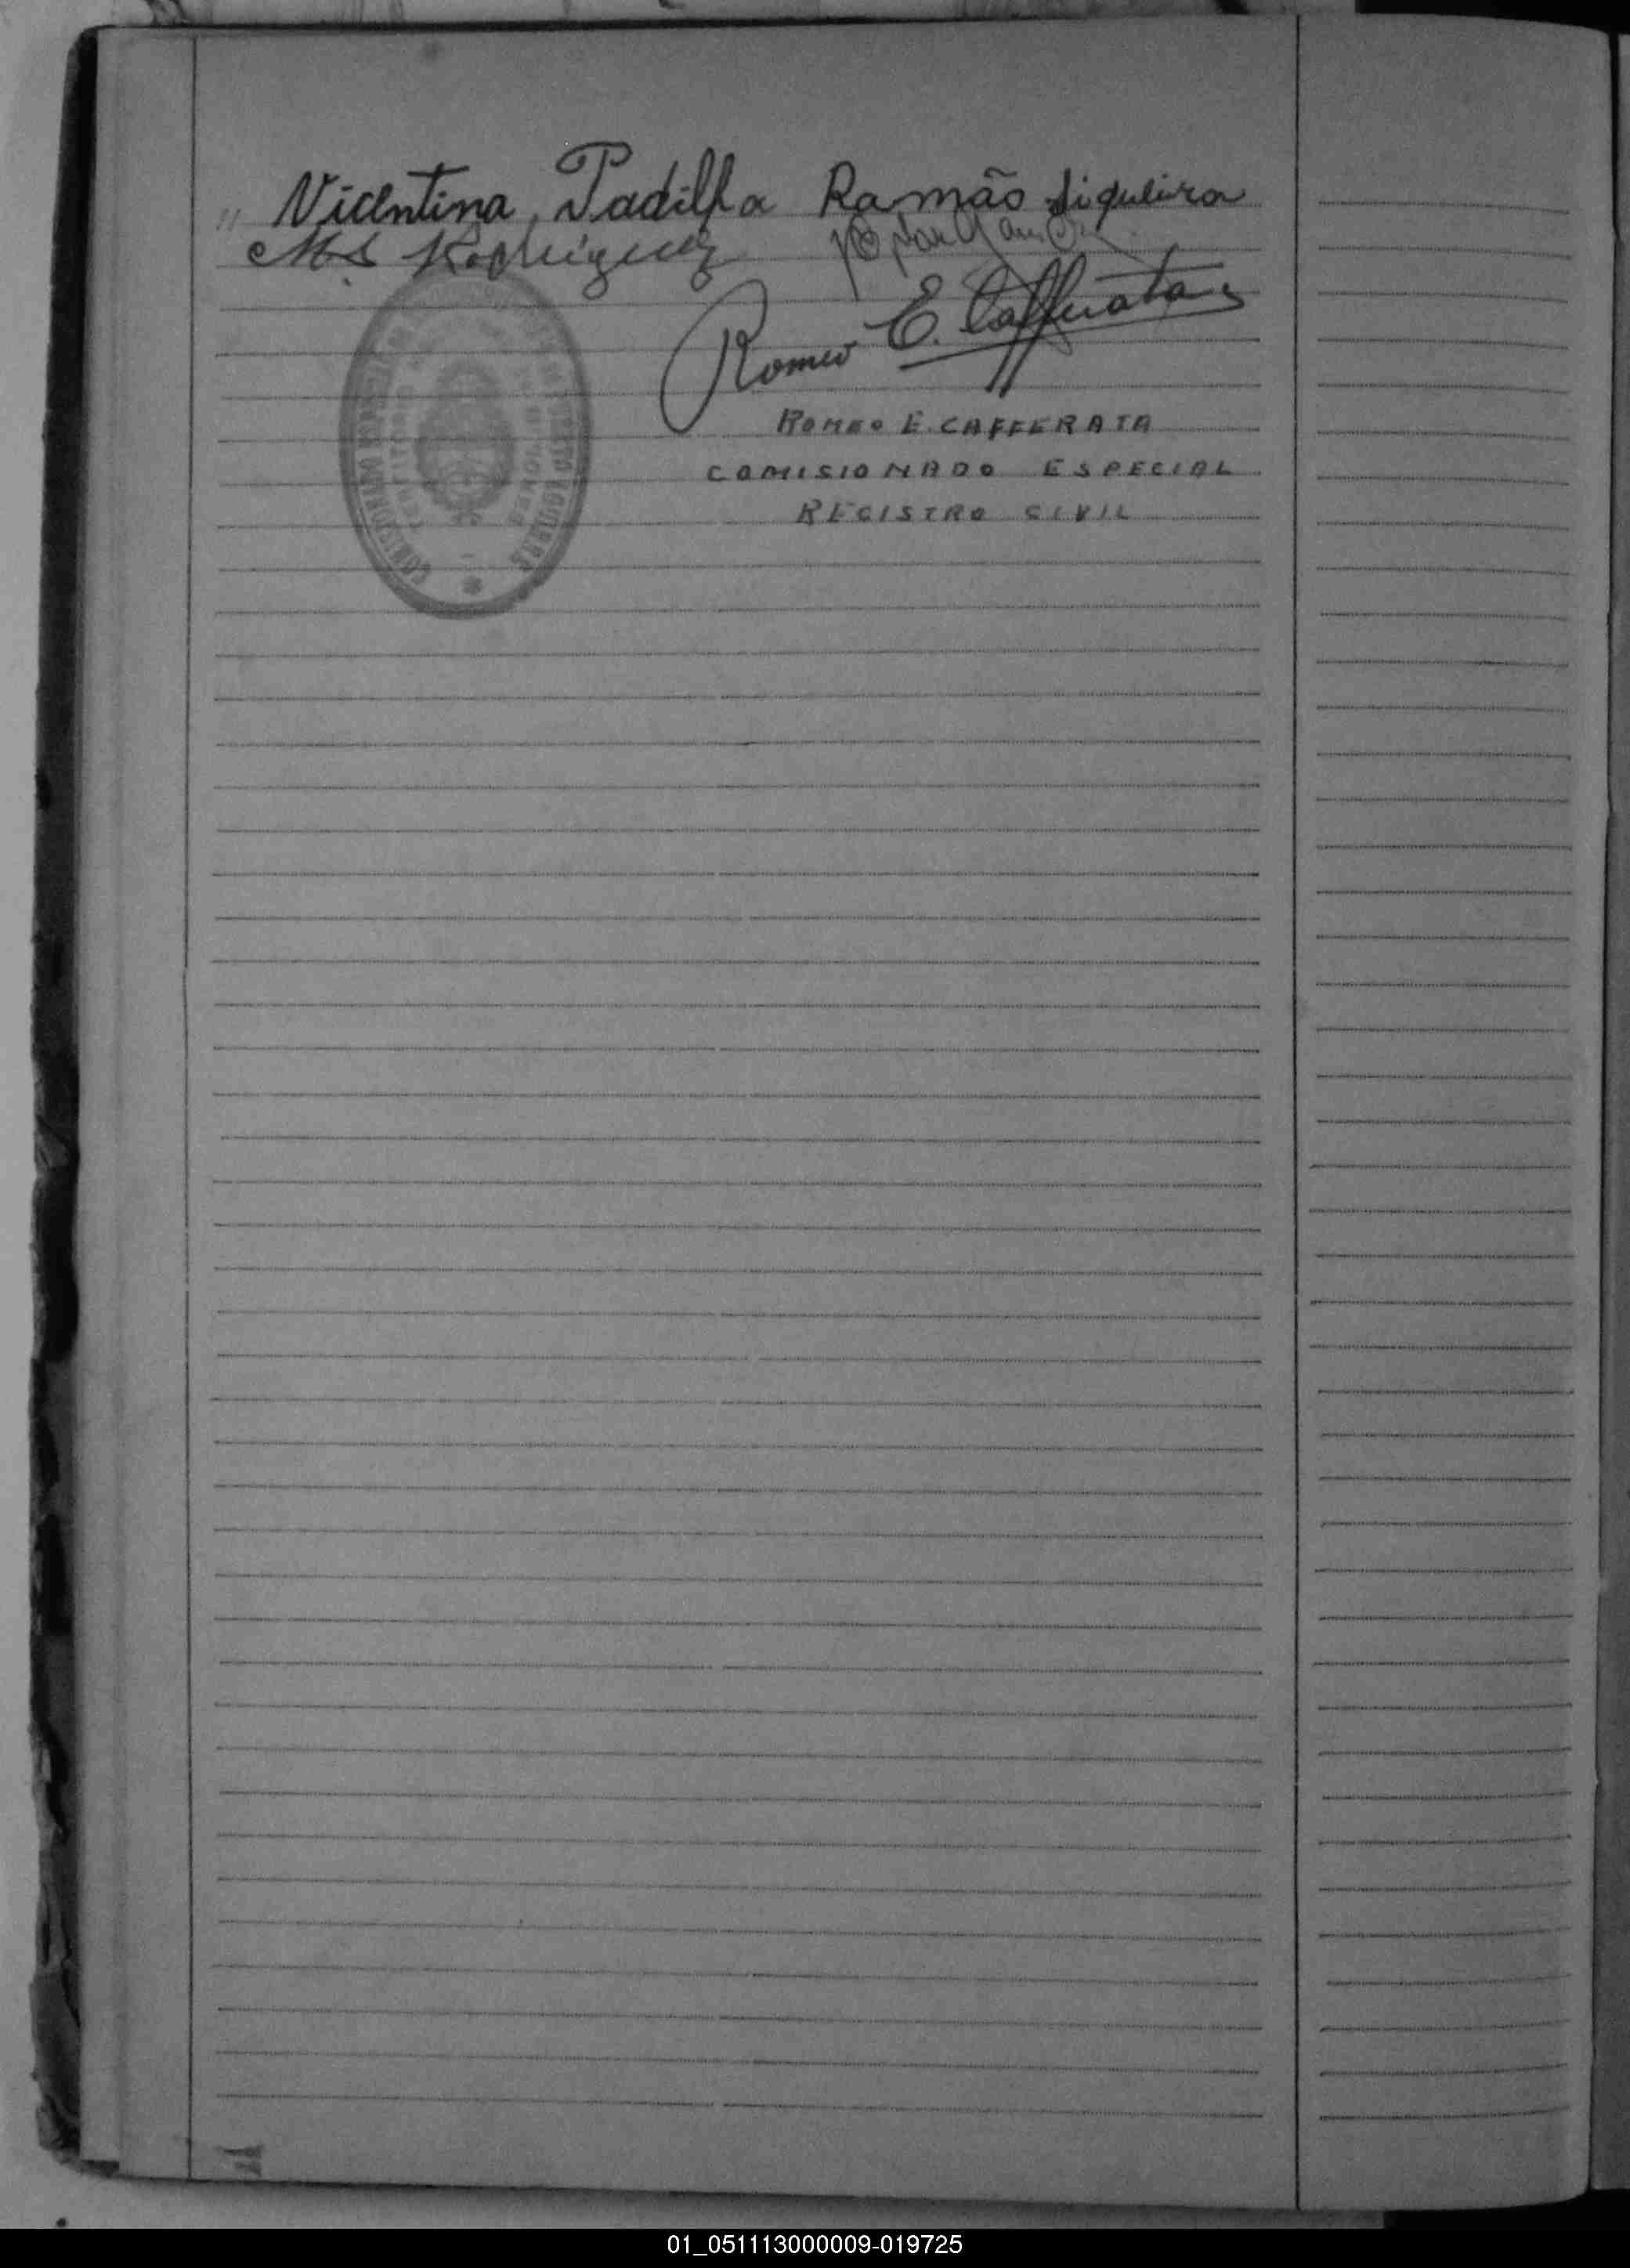 Vicentina Padilha Ramão Siqueira
Ms Rodriguez
Romeo E. Cafferata
ROMEO E. CAFFERATA
COMISIONADO ESPECIAL
REGISTRO CIVIL
01_051113000009-019725